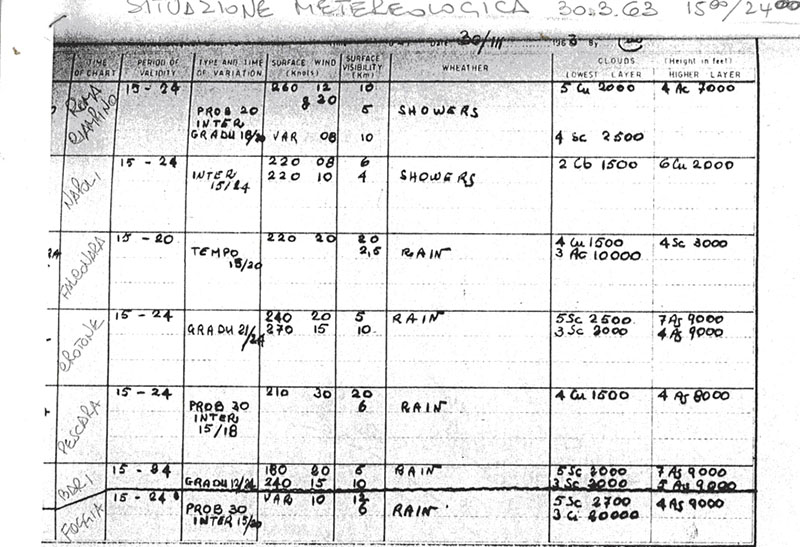 SITUAZIONE METEREOLOGICA 30.3.63 15⁰⁰/24⁰⁰
30/III 1963 By
TIME OF CHART PERIOD OF VALIDITY TYPE AND TIME OF VARIATION SURFACE WIND (Knots) SURFACE VISIBILITY (Km) WHEATHER CLOUDS (Height in feet) LOWEST LAYER HIGHER LAYER
ROMA CIAMPINO 15 - 24 260 12 10 5 Cu 2000 4 Ac 7000
g 20
PROB 20 5 SHOWERS
INTER
GRADU 18/20 VAR 08 10 4 Sc 2500
NAPOLI 15 - 24 220 08 6 2 Cb 1500 6 Cu 2000
INTER 220 10 4 SHOWERS
15/24
FALCONARA 15 - 20 220 20 20 4 Cu 1500 4 Sc 3000
TEMPO 2,5 RAIN 3 Ac 10000
15/20
CROTONE 15 - 24 240 20 5 RAIN 5 Sc 2500 7 As 9000
GRADU 21/24 270 15 10 3 Sc 3000 4 As 9000
PESCARA 15 - 24 210 30 20 4 Cu 1500 4 As 8000
PROB 30 6 RAIN
INTER
15/18
BARI 15 - 24 180 20 5 RAIN 5 Sc 2000 7 As 9000
GRADU 240 15 10 3 Sc 2000 5 As 9000
FOGGIA 15 - 24 VAR 10 12 5 Sc 2700 4 As 9000
PROB 30 6 RAIN 3 Ci 20000
INTER 15/20